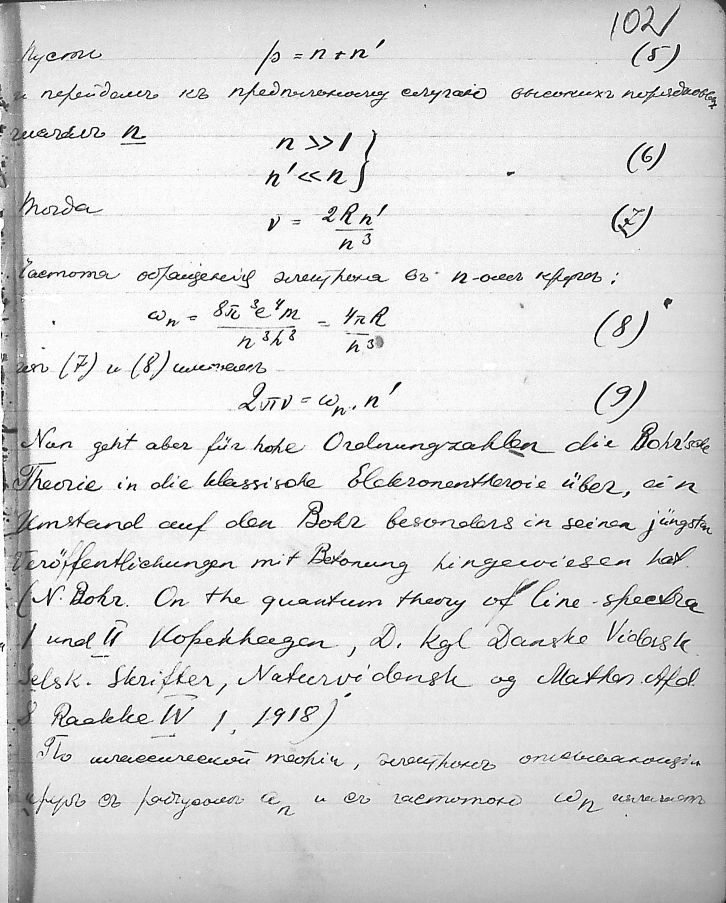 102
Пусть p = n + n' (5)
и перейдемъ къ предположному случаю высокихъ порядковъ,
n
n >> 1
n' << n } (6)
Тогда ν = 2Rn' / n³ (7)
Частота обращенія электрона въ n-омъ кругѣ:
ωₙ = 8π³e⁴m / n³h³ = 4πR / n³ (8)
изъ (7) и (8) имѣемъ
2πν = ωₙ . n' (9)
Nun geht aber für hohe Ordnungzahlen die Bohr'sche
Theorie in die klassische Elekronentheroie über, ein
Umstand auf den Bohr besonders in seinen jüngsten
Veröffentlichungen mit Betonung hingewiesen hat.
(N. Bohr. On the quantum theory of line-spectra
I und II Kopenhagen, D. Kgl Danske Vidensk.
Selsk. Skrifter, Naturvidensk og Mathem. Afd.
8 Raekke IV 1, 1918)
По классической теоріи, электронъ описывающій
кругъ съ радіусомъ aₙ и съ частотою ωₙ излучаетъ